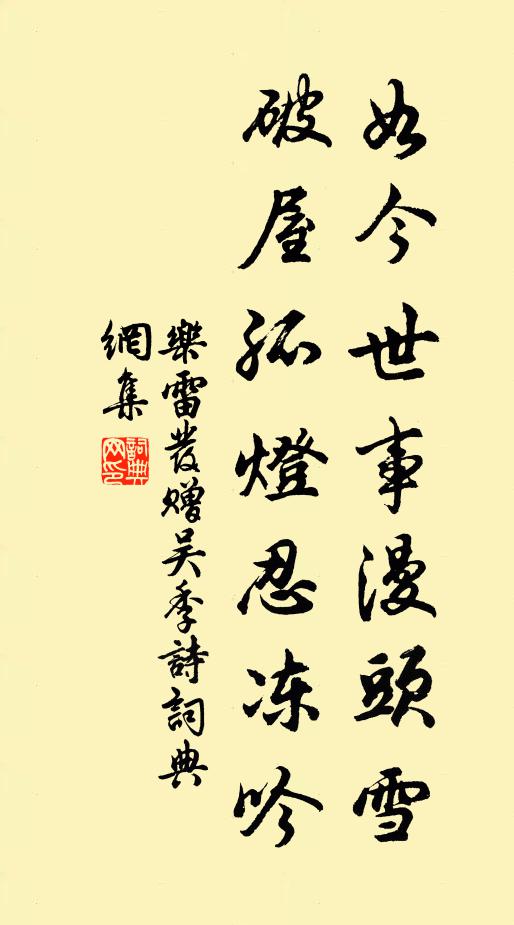 如今世事漫頭雪
破屋孤燈忍凍吟
樂雷發贈吴季詩詞典
網集
詞典
网印